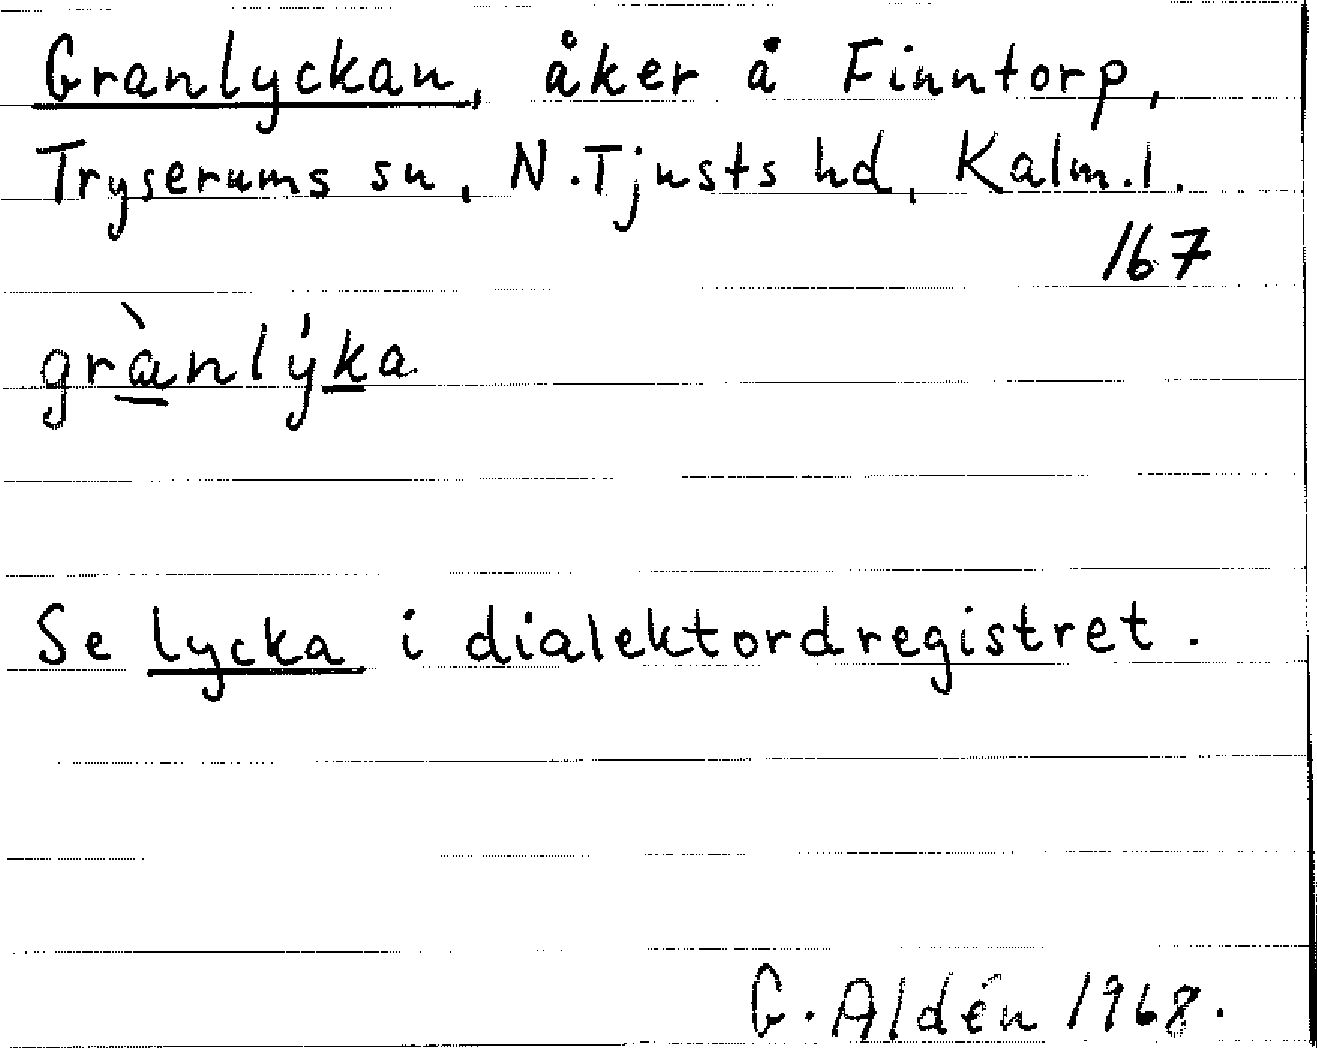 Granlyckan, åker å Finntorp,
Tryserums sn, N. Tjusts hd, Kalm. l.
167
grànlýka
Se lycka i dialektordregistret.
G. Aldén 1968.